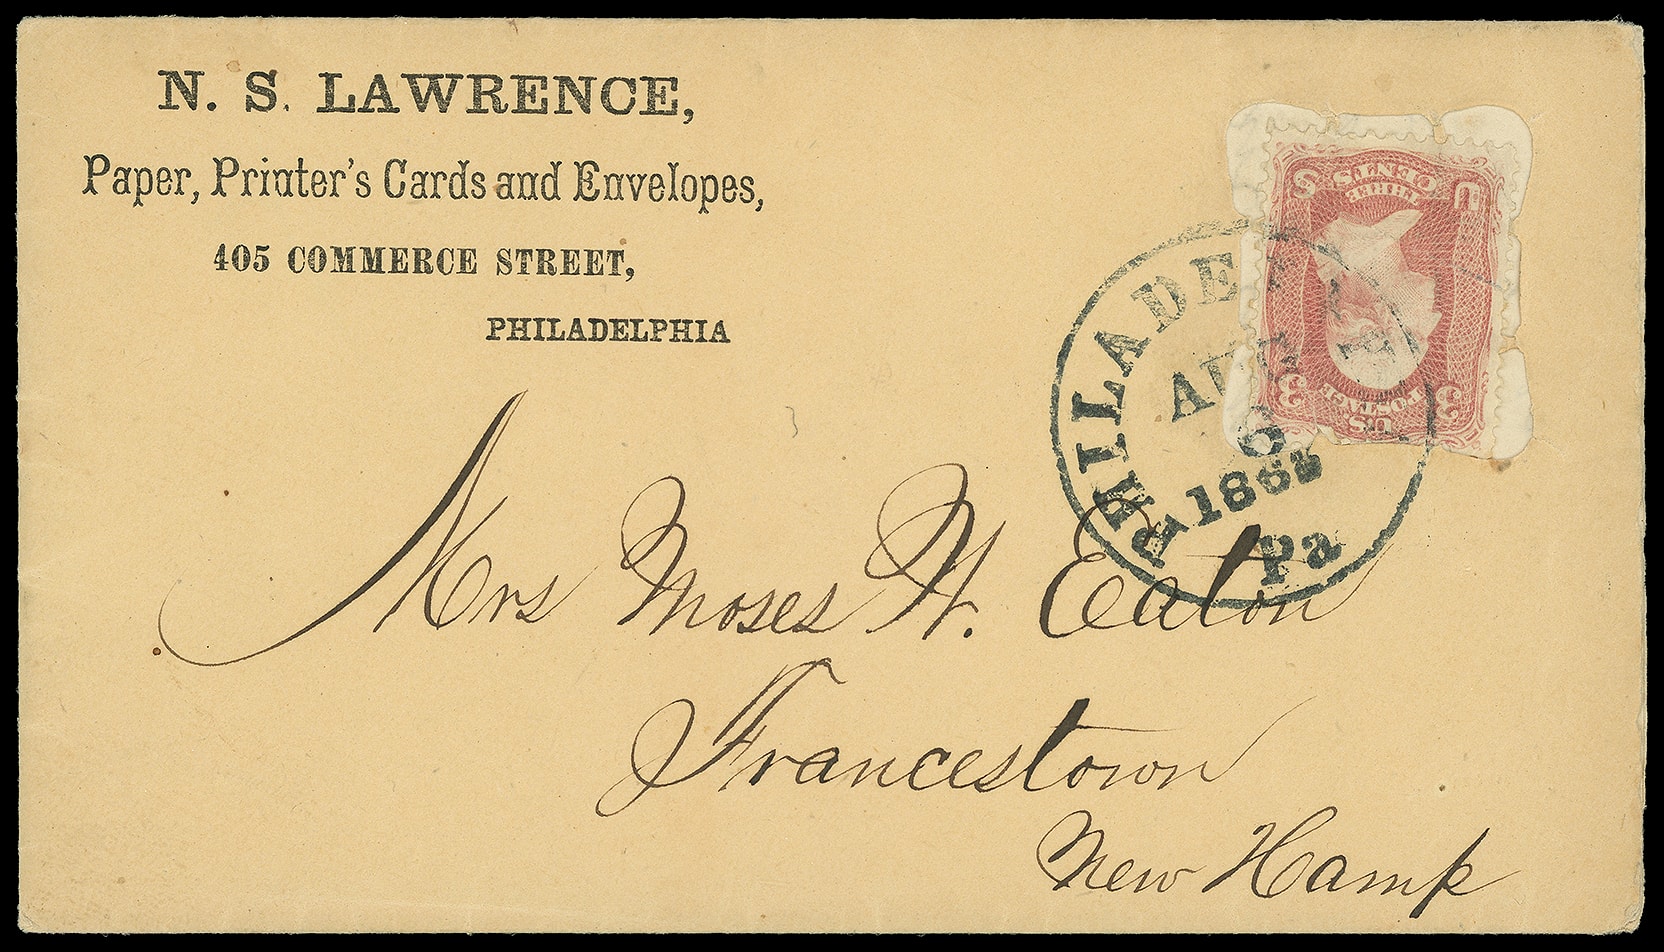 N. S. LAWRENCE,
Paper, Printer's Cards and Envelopes,
405 COMMERCE STREET,
PHILADELPHIA
U S
THREE
CENTS
3 3
U.S.
POSTAGE
AUG
6
Pa
Mrs Moses W. Eaton
Francestown
New Hamp